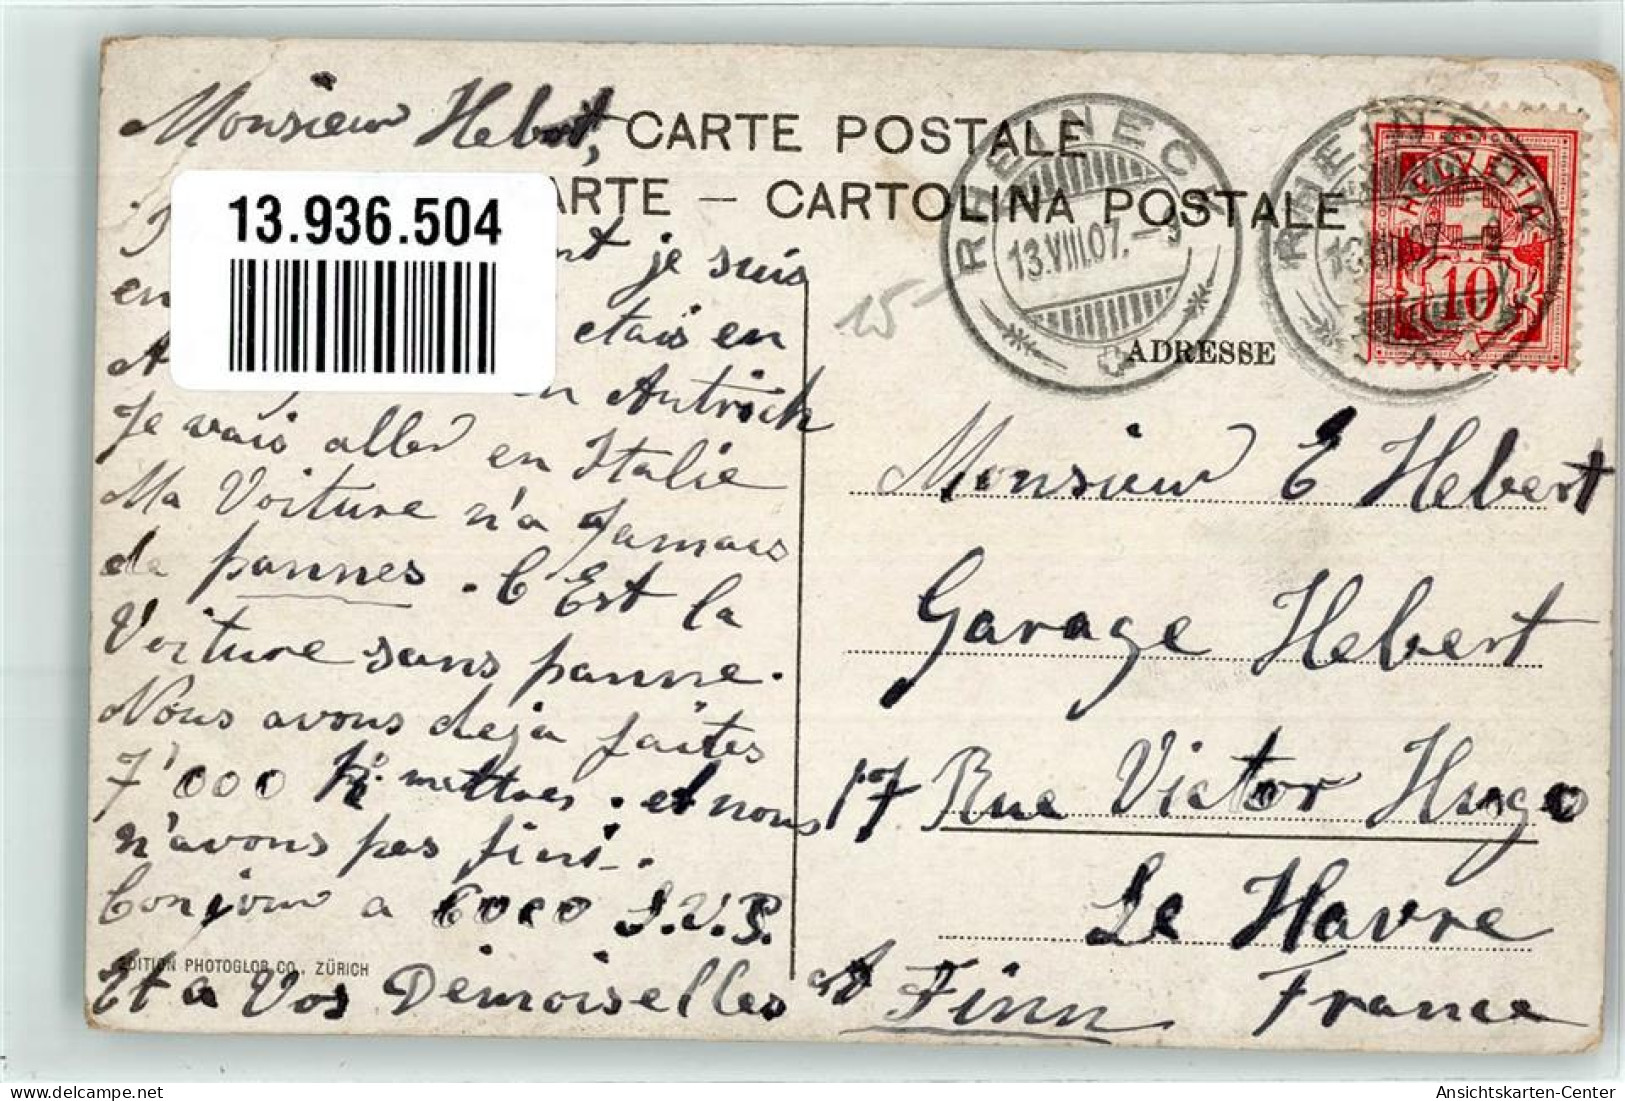 Monsieur Hebert,
CARTE POSTALE
ARTE — CARTOLINA POSTALE
13.936.504
je suis
en
etais en
A
Autrich
Je vais aller en Italie
Ma Voiture n'a Jamais
de pannes. C'Est la
Voiture sans panne.
Nous avons deja faites
7'000 K° mettres. et nous
n'avons pas fini.
Bonjour a S.V.P.
EDITION PHOTOGLOB CO., ZÜRICH
Et a Vos Demoiselles et Finn
15
RHEINECK
13.VIII.07.
RHEINECK
13.VIII.07
HELVETIA
10
ADRESSE
Monsieur E Hebert
Garage Hebert
17 Rue Victor Hugo
Le Havre
France
oldthing.de
Ansichtskarten-Center